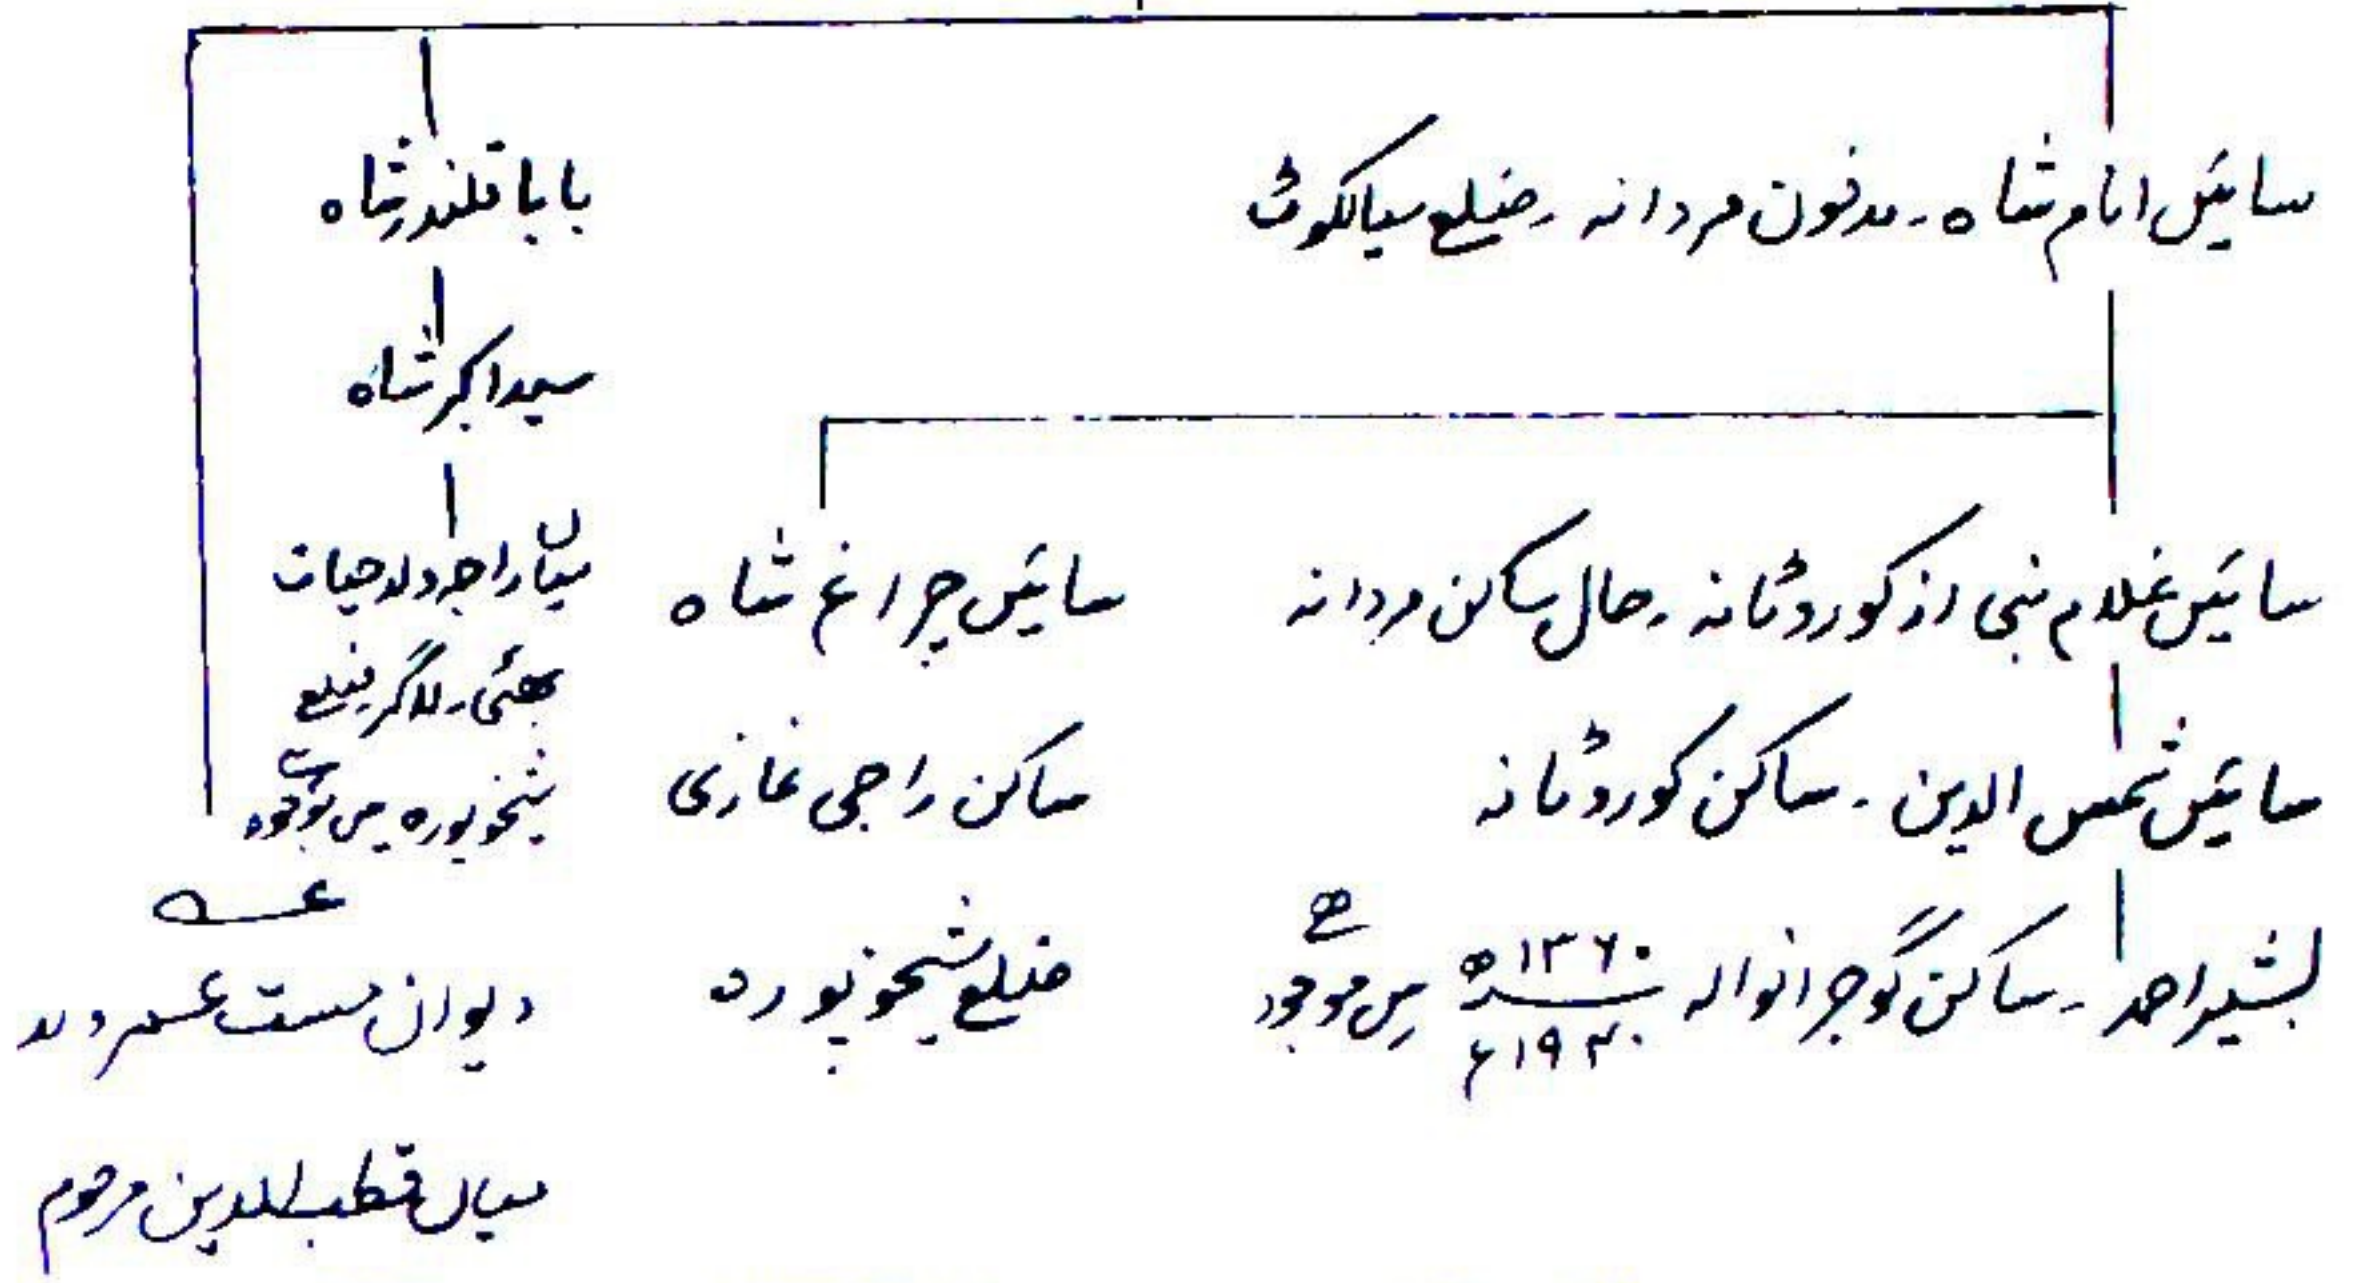 سائیں امام شاہ۔ مدفون مردانہ۔ ضلع سیالکوٹ
سائیں غلام نبی از کوروٹانہ۔ حال ساکن مردانہ
سائیں شمس الدین۔ ساکن کوروٹانہ
بشیر احمد۔ ساکن گوجرانوالہ ۱۳۶۰ھ ۱۹۴۰ء میں موجود ہے
سائیں چراغ شاہ
ساکن راجی غازی
ضلع شیخوپورہ
بابا قلندر شاہ
سید اکبر شاہ
میاں راجہ ولد حیات
بھٹی۔ للاگر ضلع
شیخوپورہ میں موجود ہے
دیوان مست ولد
میاں قطب الدین مرحوم